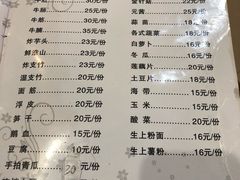 牛筋..........30元/份
牛腩..........35元/份
炸芋头......23元/份
鲜淮山......23元/份
炸支竹......20元/份
温支竹......20元/份
面筋..........20元/份
浮皮..........20元/份
笋干..........20元/份
腊血..........15元/份
豆腐..........10元/份
手拍青瓜 20元/份
元茜..........25元/份
蒜苗..........18元/份
各式蔬菜......18元/份
白萝卜......20元/份
冬瓜..........20元/份
莲藕片......20元/份
土豆片......20元/份
海带..........20元/份
玉米..........20元/份
酸菜..........20元/份
生上粉面......15元/份
生上薯粉......15元/份